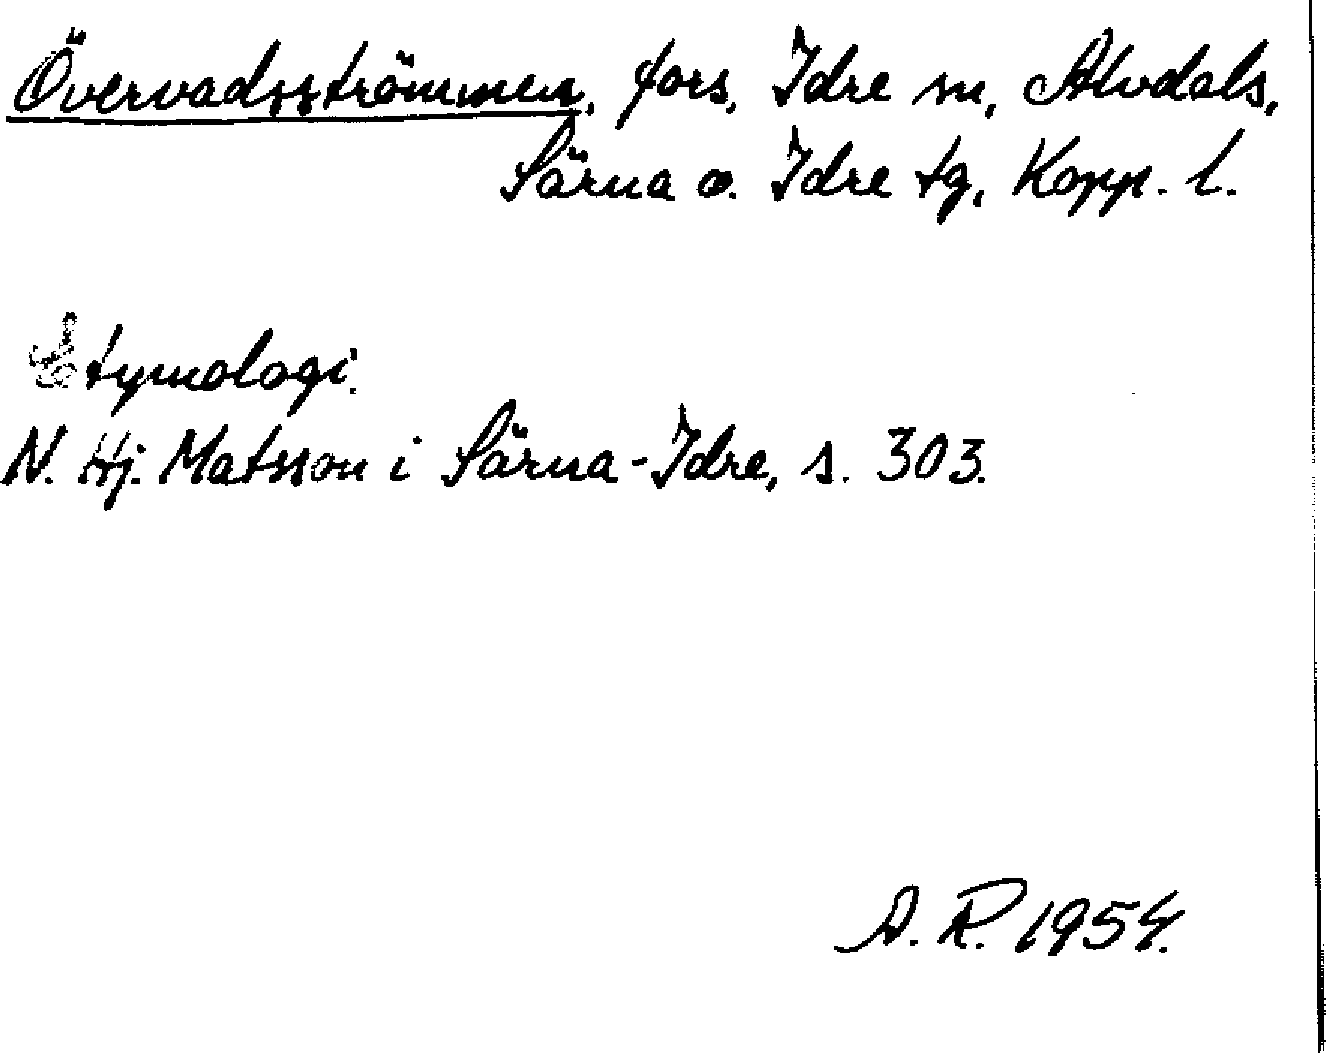 Övervadsströmmen, fors, Idre sn, Älvdals,
Särna o. Idre tg, Kopp. l.
Etymologi.
N. Hj. Matsson i Särna-Idre, s. 303.
A. R. 1954.